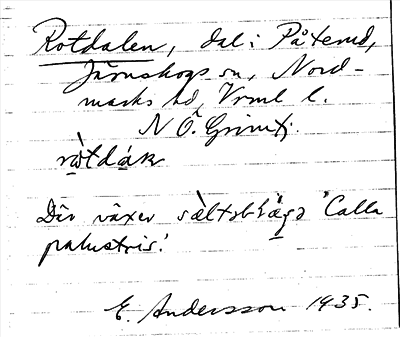 Rotdalen, dal i Påterud,
Järnskogs sn, Nord-
marks hd, Vrml l.
N Ö. Grimtj.
ràtdák
Där växer 'Calla
palustris'.
E. Andersson 1935.